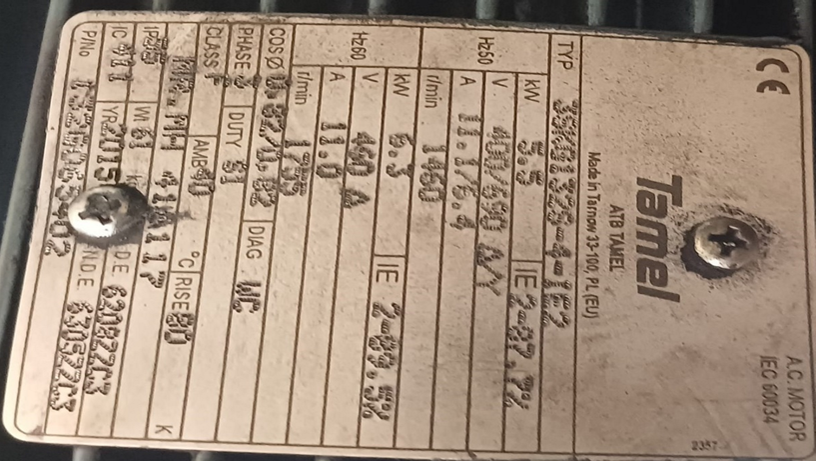 CE
A.C. MOTOR
IEC 60034
Tamel
ATB TAMEL
Made in Tarnow 33-100, PL (EU)
2357
TYP 3SKG132S-4-IE2
Hz50 kW 5.5 IE 2-87.7%
V 400/690 Δ/Y
A 11.1/6.4
r/min 1460
Hz60 kW 6.3 IE 2-89.5%
V 460 Δ
A 11.0
r/min 1755
COS Ø 0.82/0.82 DIAG WC
PHASE 3 DUTY S1
CLASS F AMB 40 °C RISE 80 K
IP 55
IC 411 WI 61 k D.E 62082ZC3
P/No YR 2015 N.D.E 6305ZZC3